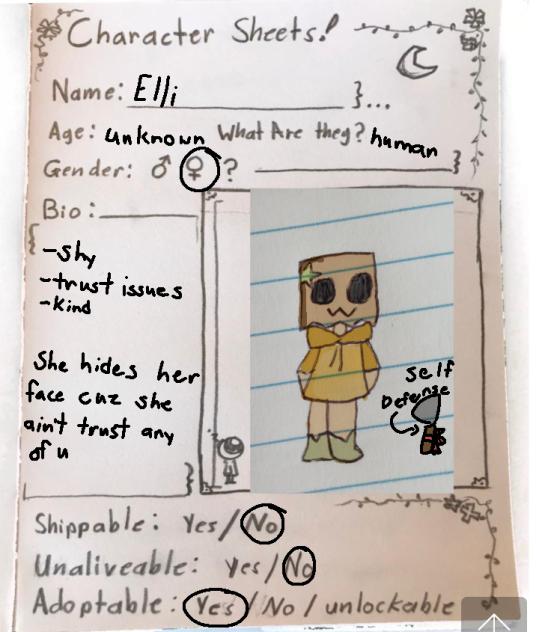 Character Sheets!
Name: Elli }...
Age: unknown What Are they? human
Gender: ♂ ♀ ? }
Bio:
-shy
-trust issues
-kind
She hides her
face cuz she
ain't trust any
of u
self
Defense
Shippable: Yes/No
Unaliveable: Yes/No
Adoptable: Yes/No/unlockable